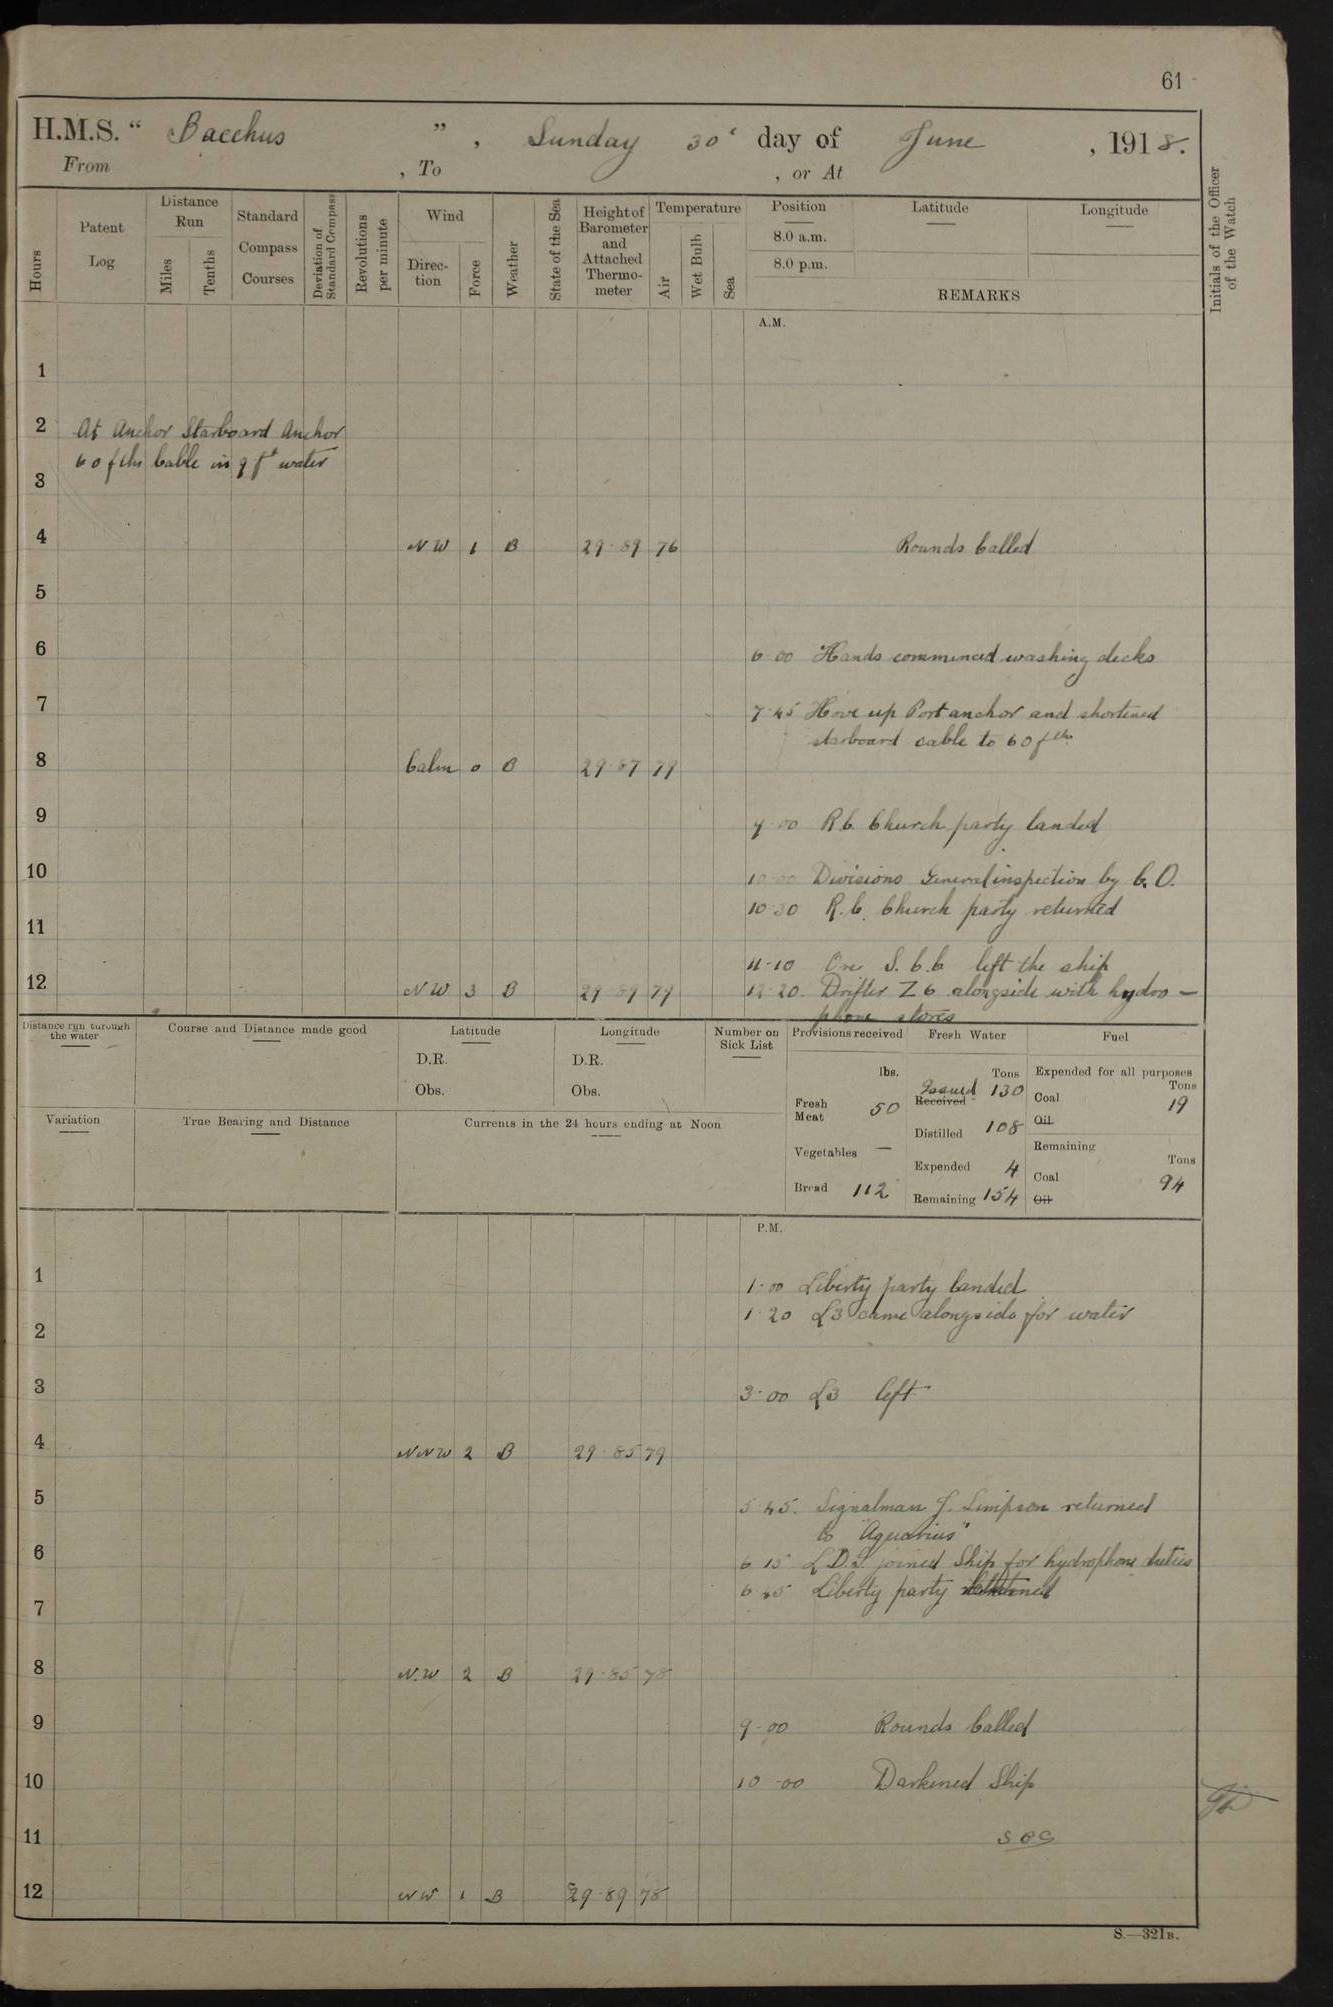 61
H.M.S. “ Bacchus ” , Sunday 30 day of June , 1918.
From , To , or At
Hours
Patent Log
Distance Run
Miles
Tenths
Standard Compass Courses
Deviation of Standard Compass
Revolutions per minute
Wind
Direc-tion
Force
Weather
State of the Sea
Height of Barometer and Attached Thermo-meter
Temperature
Air
Wet Bulb
Sea
Position
8.0 a.m.
8.0 p.m.
Latitude
Longitude
REMARKS
Initials of the Officer of the Watch
A.M.
1
2 At Anchor Starboard Anchor
60 fths Cable in 9 fs water
3
4 NW 1 B 29·89 76 Rounds Called
5
6 6·00 Hands commenced washing decks
7 7·45 Hove up Port anchor and shortened
starboard cable to 60 fths
8 Calm 0 B 29·87 79
9 9·00 R.C. Church party landed
10 10·00 Divisions General inspection by C.O.
10·30 R.C. Church party returned
11
11·10 One S.C.C. left the ship
12 NW 3 B 29·89 79 12·20. Drifter Z6 alongside with hydro-
phone stores
Distance run through the water
Course and Distance made good
Latitude
D.R.
Obs.
Longitude
D.R.
Obs.
Number on Sick List
Provisions received
lbs.
Fresh Meat 50
Vegetables —
Bread 112
Fresh Water
Tons
Issued Received 130
Distilled 108
Expended 4
Remaining 154
Fuel
Expended for all purposes
Tons
Coal 19
Oil
Remaining
Tons
Coal 94
Oil
Variation
True Bearing and Distance
Currents in the 24 hours ending at Noon
P.M.
1 1·00 Liberty party landed
1·20 L3 came alongside for water
2
3 3·00 L3 left
4 NNW 2 B 29·85 79
5 5·45. Signalman J. Simpson returned
to "Aquarius"
6 6·15 L.D.S. joined Ship for hydrophone duties
Liberty party
7
8 N.W 2 B 29·85 78
9 9·00 Rounds Called
10 10·00 Darkened Ship
11
12 NW 1 B 29·89 78
S.—321B.